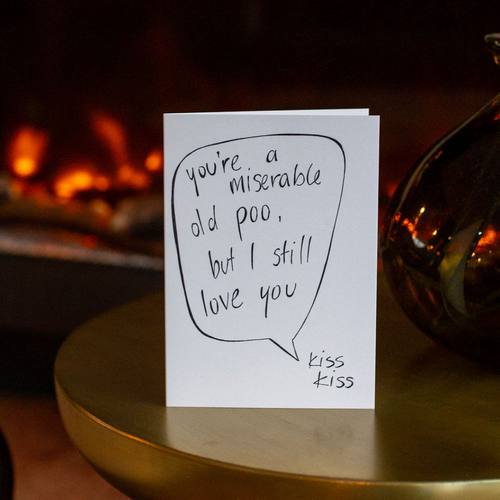 you're a
miserable
old poo,
but I still
love you
kiss
kiss